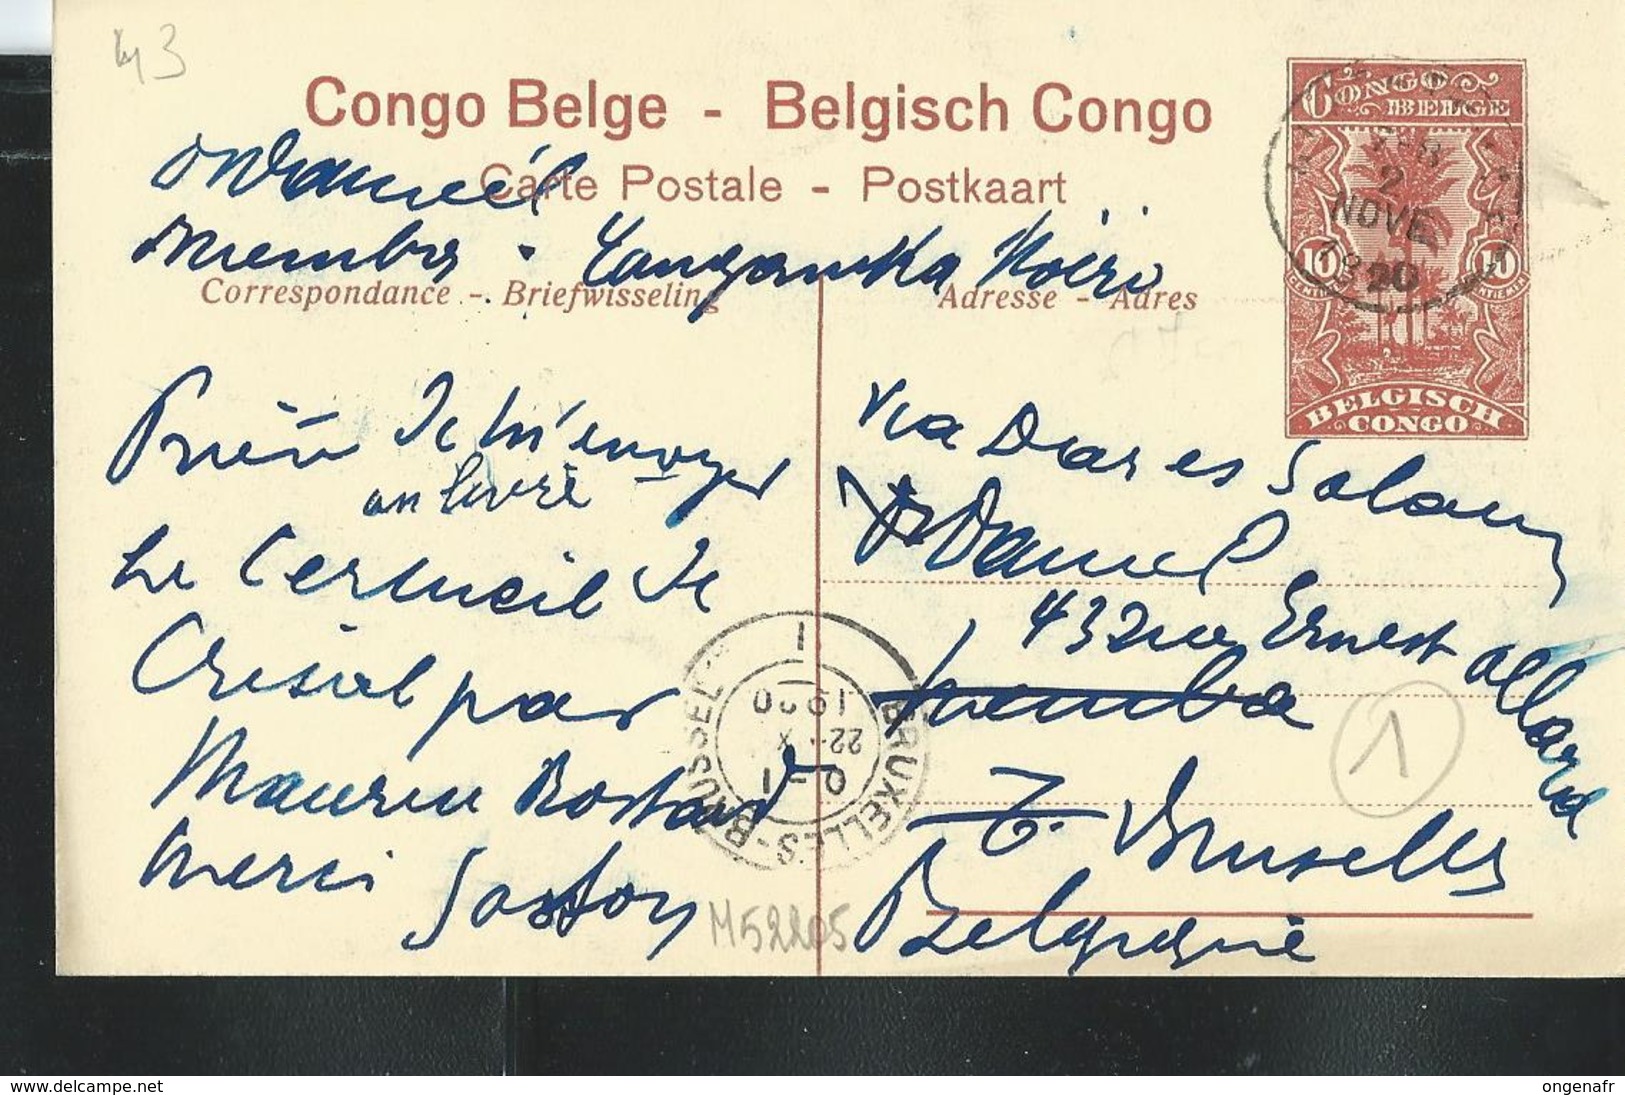 43
Congo Belge - Belgisch Congo
Carte Postale - Postkaart
CONGO
BELGE
2
NOVE
1920
10 10
BELGISCH
CONGO
Daniel
Tanganika Moëro
Correspondance - Briefwisseling
Adresse - Adres
Prière de m'envoyer
un livre
Le Cercueil de
Cristal par
Maurice Rostand
merci Gaston
Via Dar es Salam
Daniel
43 rue Ernest Allard
Bruxelles
Belgique
BRUXELLES - BRUSSEL
1
22
1920
1
M52205
delcampe.net
ongenafr